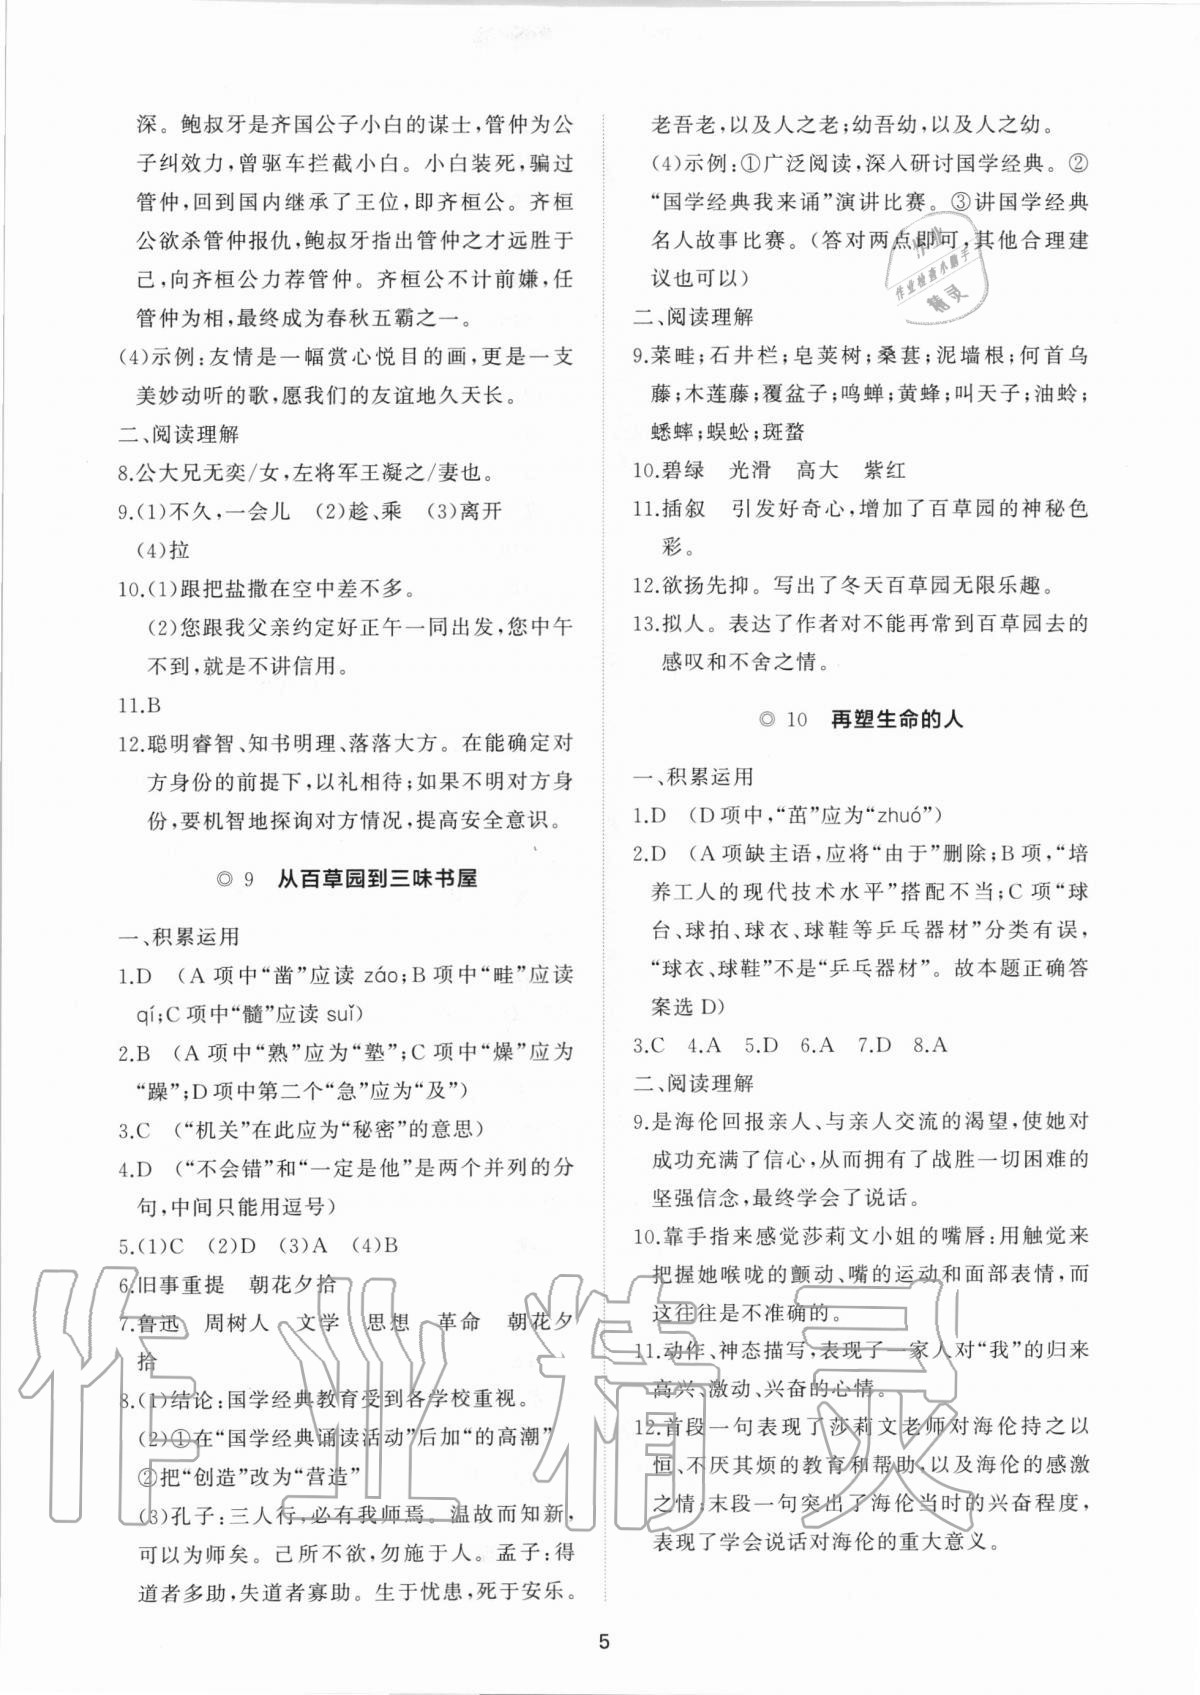 深。鲍叔牙是齐国公子小白的谋士，管仲为公
子纠效力，曾驱车拦截小白。小白装死，骗过
管仲，回到国内继承了王位，即齐桓公。齐桓
公欲杀管仲报仇，鲍叔牙指出管仲之才远胜于
己，向齐桓公力荐管仲。齐桓公不计前嫌，任
管仲为相，最终成为春秋五霸之一。
(4)示例：友情是一幅赏心悦目的画，更是一支
美妙动听的歌，愿我们的友谊地久天长。
二、阅读理解
8.公大兄无奕/女，左将军王凝之/妻也。
9.(1)不久，一会儿 (2)趁、乘 (3)离开
(4)拉
10.(1)跟把盐撒在空中差不多。
(2)您跟我父亲约定好正午一同出发，您中午
不到，就是不讲信用。
11.B
12.聪明睿智、知书明理、落落大方。在能确定对
方身份的前提下，以礼相待；如果不明对方身
份，要机智地探询对方情况，提高安全意识。
◎ 9 从百草园到三味书屋
一、积累运用
1.D (A项中“凿”应读 záo；B项中“畦”应读
qí；C项中“髓”应读 suǐ)
2.B (A项中“熟”应为“塾”；C项中“燥”应为
“躁”；D项中第二个“急”应为“及”)
3.C (“机关”在此应为“秘密”的意思)
4.D (“不会错”和“一定是他”是两个并列的分
句，中间只能用逗号)
5.(1)C (2)D (3)A (4)B
6.旧事重提 朝花夕拾
7.鲁迅 周树人 文学 思想 革命 朝花夕
拾
8.(1)结论：国学经典教育受到各学校重视。
(2)①在“国学经典诵读活动”后加“的高潮”
②把“创造”改为“营造”
(3)孔子：三人行，必有我师焉。温故而知新，
可以为师矣。己所不欲，勿施于人。孟子：得
道者多助，失道者寡助。生于忧患，死于安乐。
老吾老，以及人之老；幼吾幼，以及人之幼。
(4)示例：①广泛阅读，深入研讨国学经典。②
“国学经典我来诵”演讲比赛。③讲国学经典
名人故事比赛。(答对两点即可，其他合理建
议也可以)
二、阅读理解
9.菜畦；石井栏；皂荚树；桑葚；泥墙根；何首乌
藤；木莲藤；覆盆子；鸣蝉；黄蜂；叫天子；油蛉；
蟋蟀；蜈蚣；斑蝥
10.碧绿 光滑 高大 紫红
11.插叙 引发好奇心，增加了百草园的神秘色
彩。
12.欲扬先抑。写出了冬天百草园无限乐趣。
13.拟人。表达了作者对不能再常到百草园去的
感叹和不舍之情。
◎ 10 再塑生命的人
一、积累运用
1.D (D项中，“茁”应为“zhuó”)
2.D (A项缺主语，应将“由于”删除；B项，“培
养工人的现代技术水平”搭配不当；C项“球
台、球拍、球衣、球鞋等乒乓器材”分类有误，
“球衣、球鞋”不是“乒乓器材”。故本题正确答
案选D)
3.C 4.A 5.D 6.A 7.D 8.A
二、阅读理解
9.是海伦回报亲人、与亲人交流的渴望，使她对
成功充满了信心，从而拥有了战胜一切困难的
坚强信念，最终学会了说话。
10.靠手指来感觉莎莉文小姐的嘴唇：用触觉来
把握她喉咙的颤动、嘴的运动和面部表情，而
这往往是不准确的。
11.动作、神态描写，表现了一家人对“我”的归来
高兴、激动、兴奋的心情。
12.首段一句表现了莎莉文老师对海伦持之以
恒、不厌其烦的教育和帮助，以及海伦的感激
之情；末段一句突出了海伦当时的兴奋程度，
表现了学会说话对海伦的重大意义。
5
作业
作业检查小助手
精灵
作业精灵